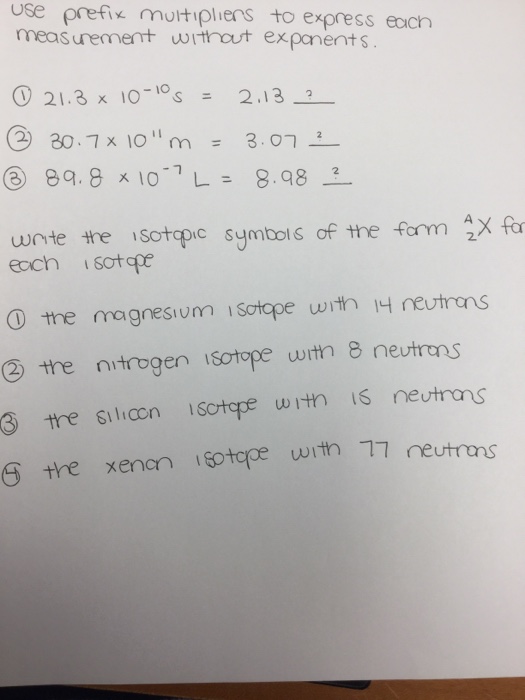 use prefix multipliers to express each
measurement without exponents.
① 21.3 x 10⁻¹⁰ s = 2.13 ?
② 30.7 x 10¹¹ m = 3.07 ?
③ 89.8 x 10⁻⁷ L = 8.98 ?
write the isotopic symbols of the form ᴬ₂X for
each isotope
① the magnesium isotope with 14 neutrons
② the nitrogen isotope with 8 neutrons
③ the silicon isotope with 15 neutrons
④ the xenon isotope with 77 neutrons